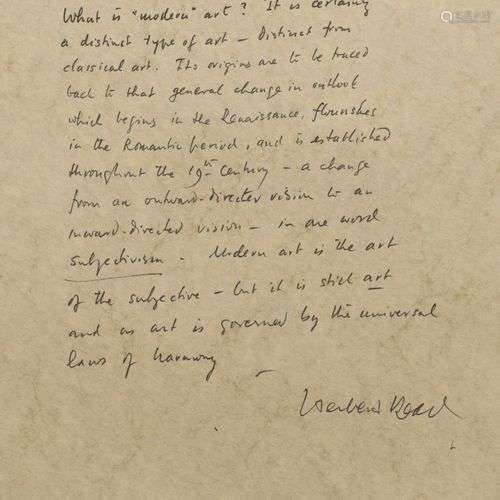 What is "modern" art? It is certainly
a distinct type of art – distinct from
classical art. Its origins are to be traced
back to that general change in outlook
which begins in the Renaissance, flourishes
in the Romantic period, and is established
throughout the 19th century – a change
from an outward-directed vision to an
inward-directed vision – in one word
subjectivism. Modern art is the art
of the subjective – but it is still art
and as art is governed by the universal
laws of harmony –
Herbert Read